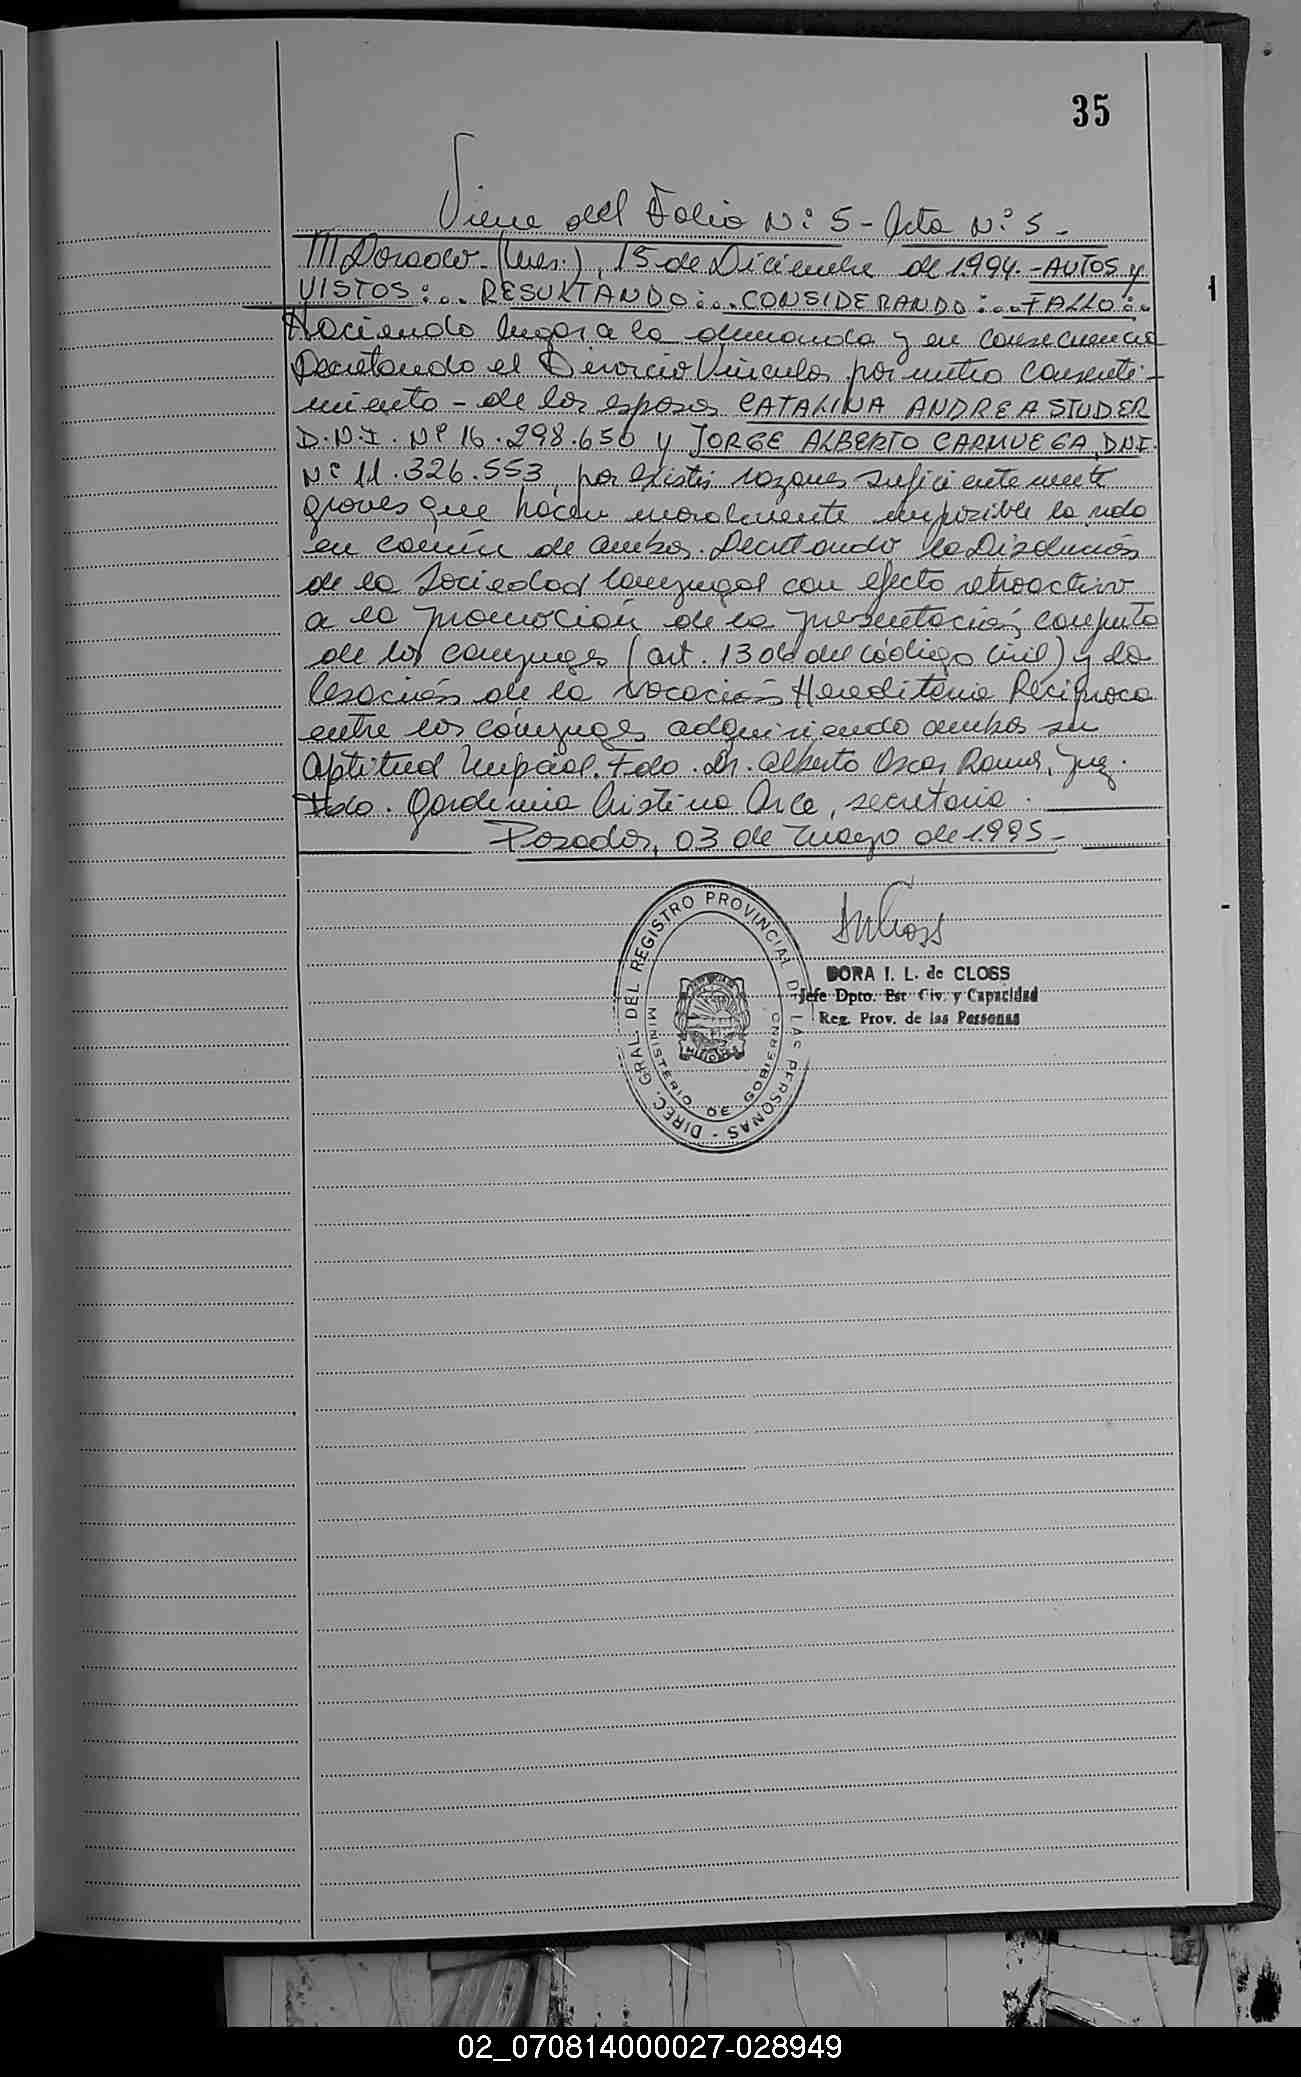 35
Viene del Folio N:° 5 - Acta N:° 5 -
///Dorado - (Mnes.), 15 de Diciembre de 1.994. - AUTOS y
VISTOS:... RESULTANDO:... CONSIDERANDO:... FALLO:..
Haciendo lugar a la demanda y en consecuencia
Decretando el Divorcio Vincular por mutuo consenti-
miento - de los esposos CATALINA ANDREA STUDER
D.N.I. Nº 16.298.650 y JORGE ALBERTO CARMUEGA, DNI.
Nº 11.326.553, por existir razones suficientemente
graves que hacen moralmente imposible la vida
en común de ambos. Decretando la Disolución
de la Sociedad Conyugal con efecto retroactivo
a la promoción de la presentación conjunta
de los conyuges (art. 1306 del Código Civil) y la
Cesación de la vocación Hereditaria Recíproca
entre los cónyuges adquiriendo ambos su
Aptitud Nupcial. Fdo. Dr. Alberto Oscar Juez.
Fdo. Gardenia Cristina Arce, secretaria.
Posadas, 03 de Mayo de 1.995 -
DIREC. GRAL. DEL REGISTRO PROVINCIAL DE LAS PERSONAS -
MINISTERIO DE GOBIERNO
MISIONES
DORA I. L. de CLOSS
Jefe Dpto. Est Civ. y Capacidad
Reg. Prov. de las Personas
02_070814000027-028949